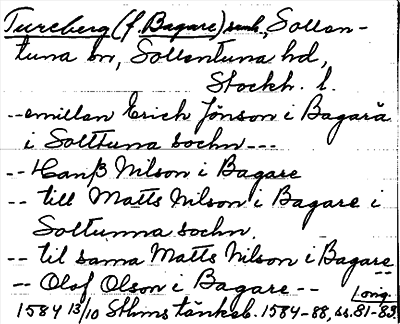 Tureberg (f. Bagare) samh., Sollen-
tuna sn, Sollentuna hd,
Stockh. l.
-- emillan Erich Jönson i Bagarå
i Solttuna sochn ---
-- Hanß Nilson i Bagare
-- till Matts Nilson i Bagare i
Soltunna sochn.
-- til sama Matts Nilson i Bagare --
-- Olof Olson i Bagare --
Long.
1584 13/10 Sthlms tänkeb. 1584-88, ss. 81-82